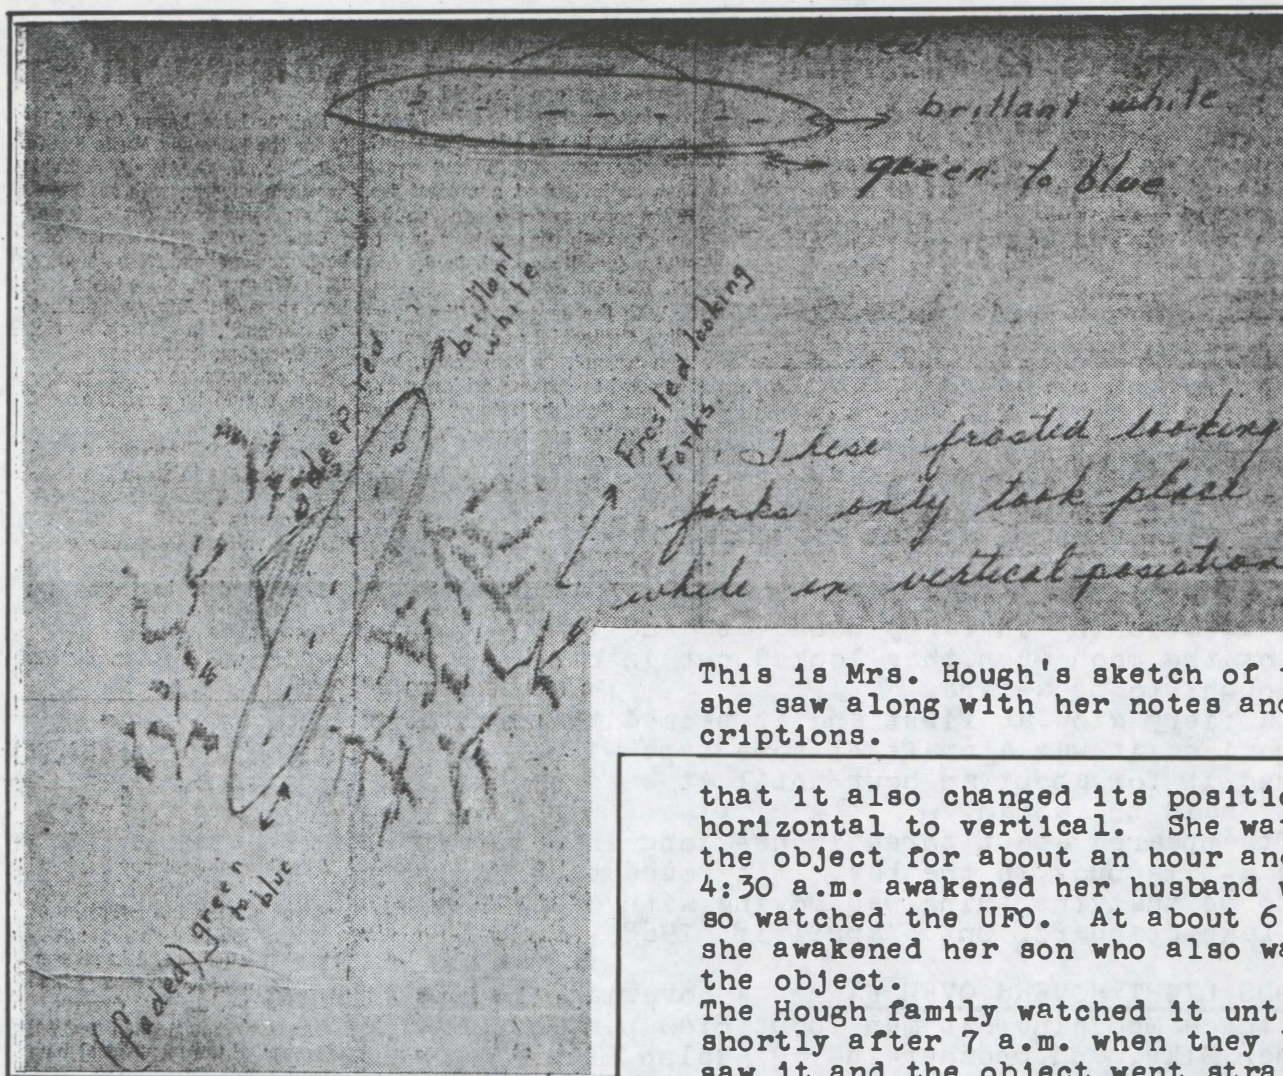 red
brillant white
green to blue
brillant
white
deep red
Frosted looking
forks
These frosted looking
forks only took place
while in vertical position
(faded) green
to
blue
This is Mrs. Hough's sketch of
she saw along with her notes and
criptions.
that it also changed its positio
horizontal to vertical. She wat
the object for about an hour and
4:30 a.m. awakened her husband w
so watched the UFO. At about 6
she awakened her son who also wa
the object.
The Hough family watched it unt
shortly after 7 a.m. when they
saw it and the object went stra